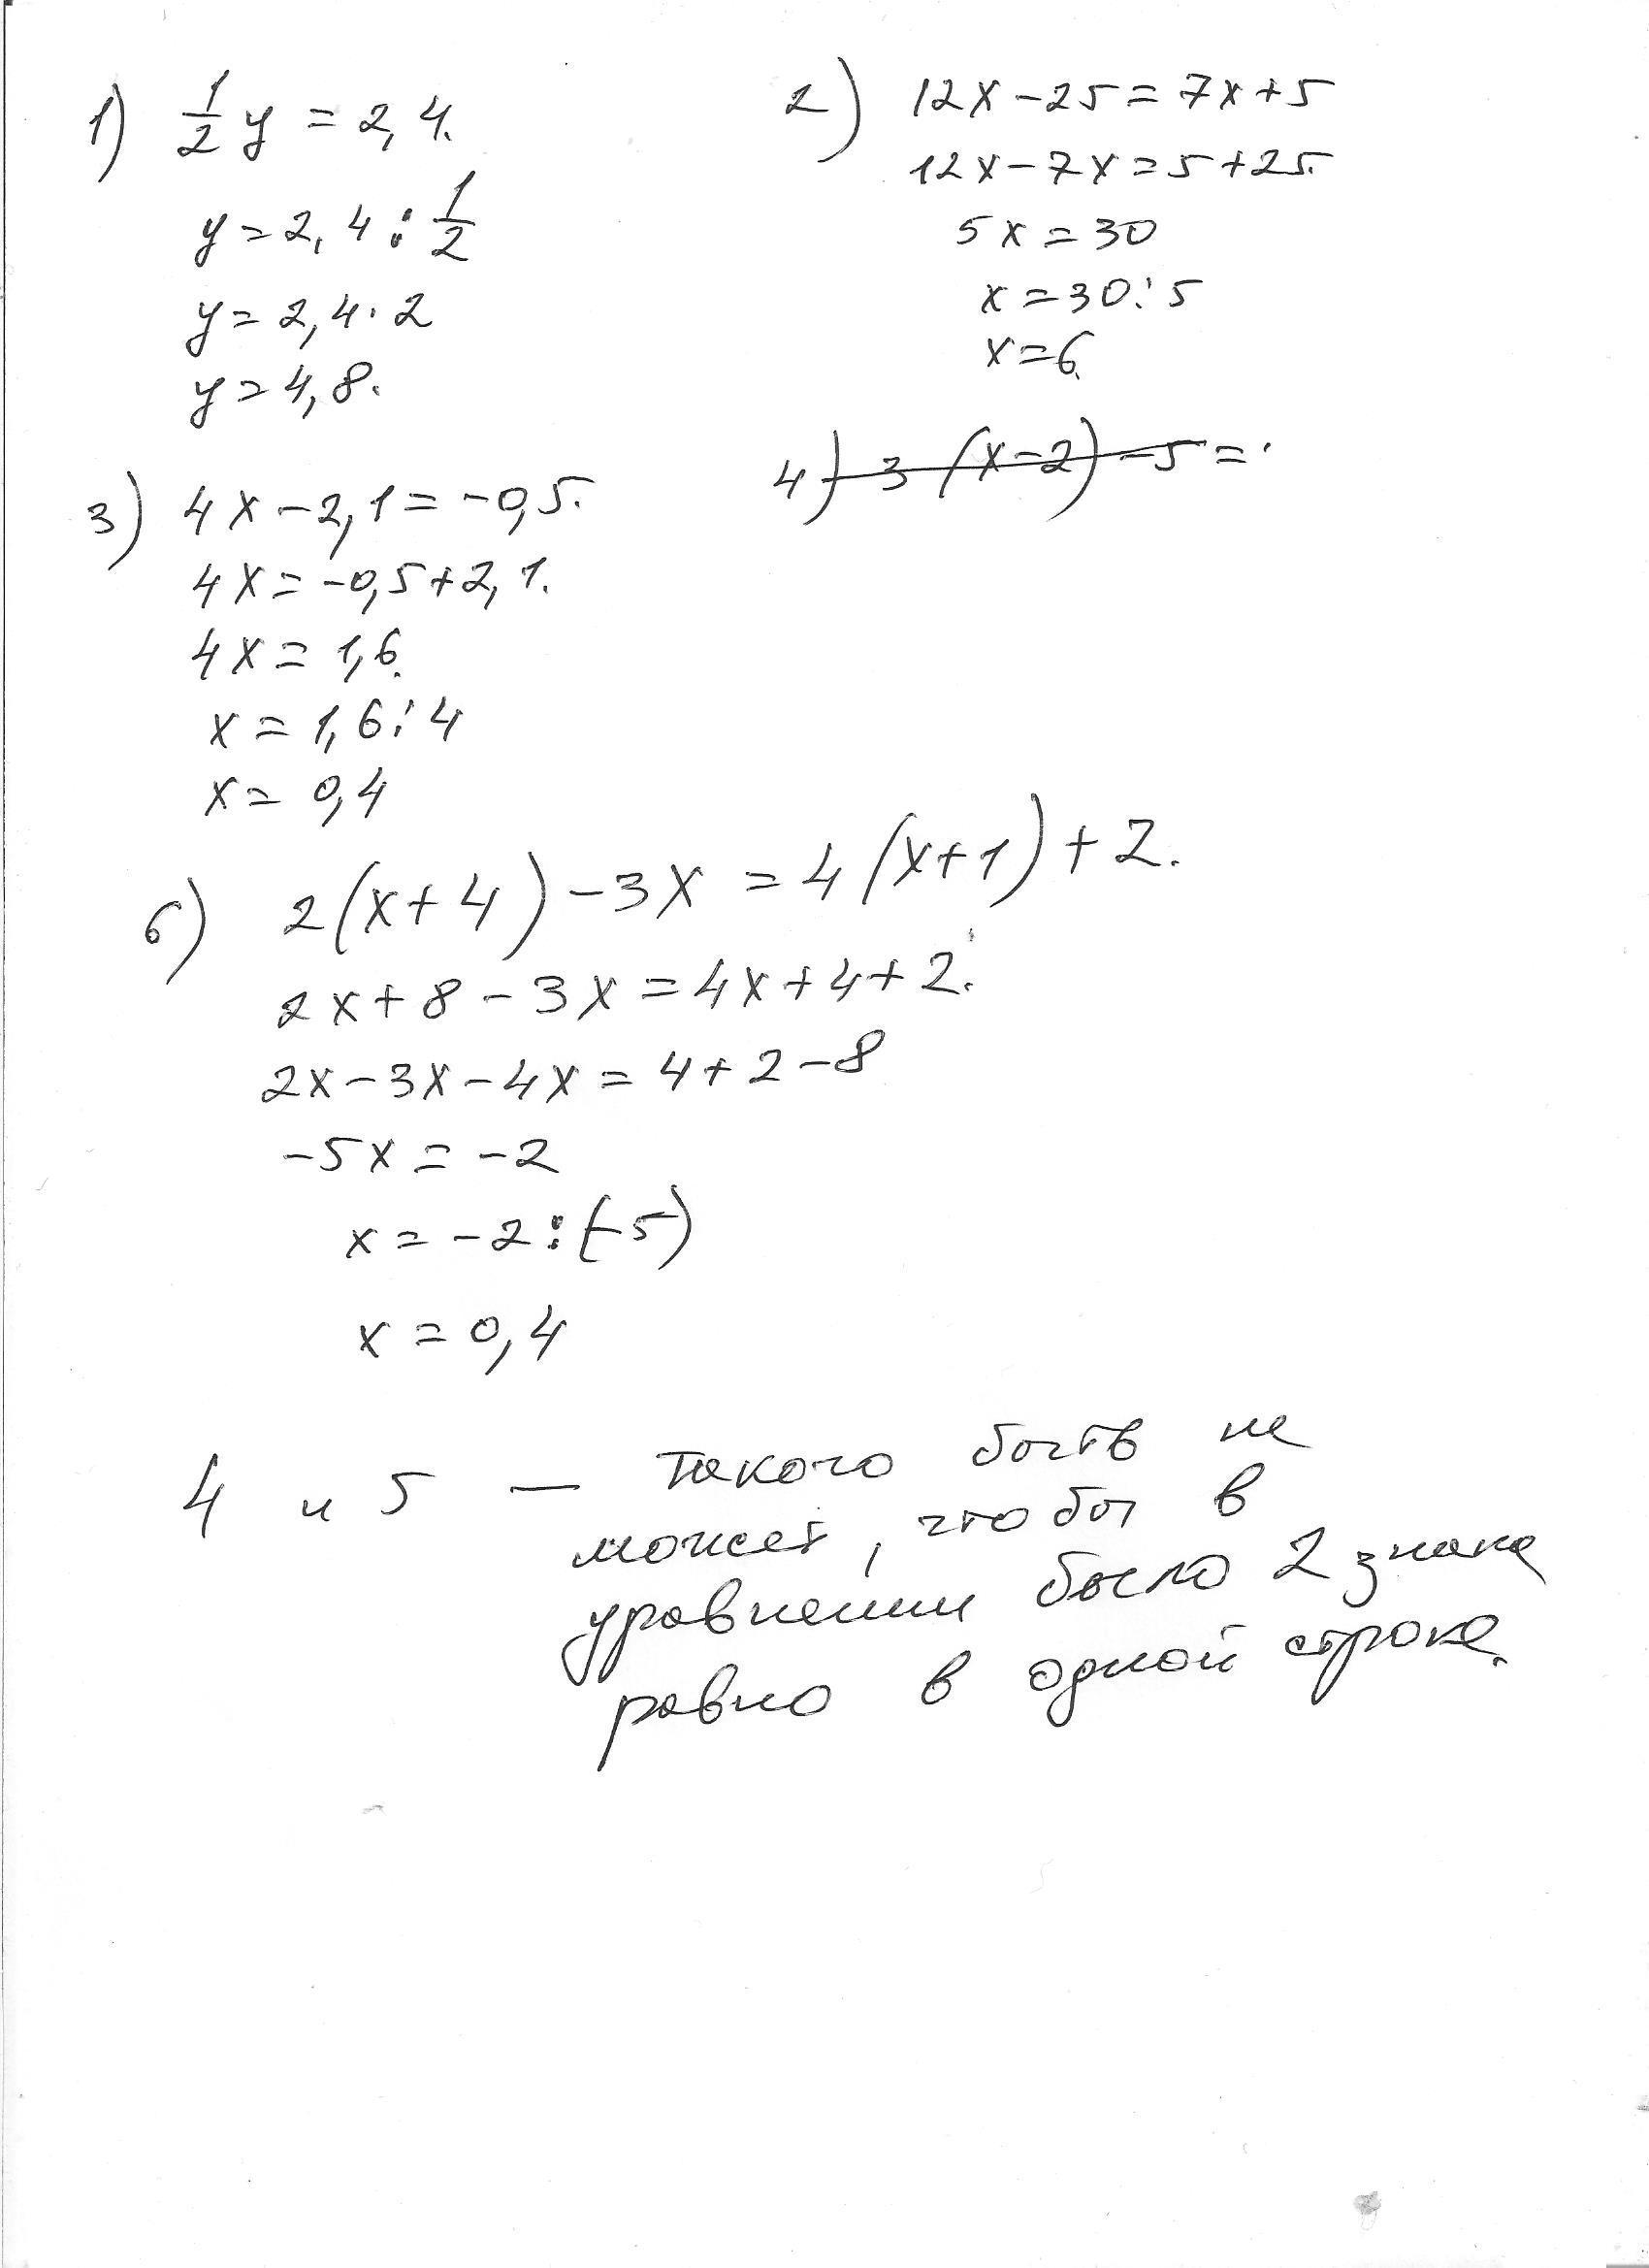 1) 1/2 y = 2,4.
y = 2,4 : 1/2
y = 2,4 · 2
y = 4,8.
2) 12x - 25 = 7x + 5
12x - 7x = 5 + 25.
5x = 30
x = 30 : 5
x = 6.
3) 4x - 2,1 = -0,5.
4x = -0,5 + 2,1.
4x = 1,6.
x = 1,6 : 4
x = 0,4
4) 3(x-2) - 5 =
6) 2(x+4) - 3x = 4(x+1) + 2.
2x + 8 - 3x = 4x + 4 + 2.
2x - 3x - 4x = 4 + 2 - 8
-5x = -2
x = -2 : (-5)
x = 0,4
4 и 5 — такого быть не
может, чтобы в
уравнении было 2 знака
равно в одной строке.